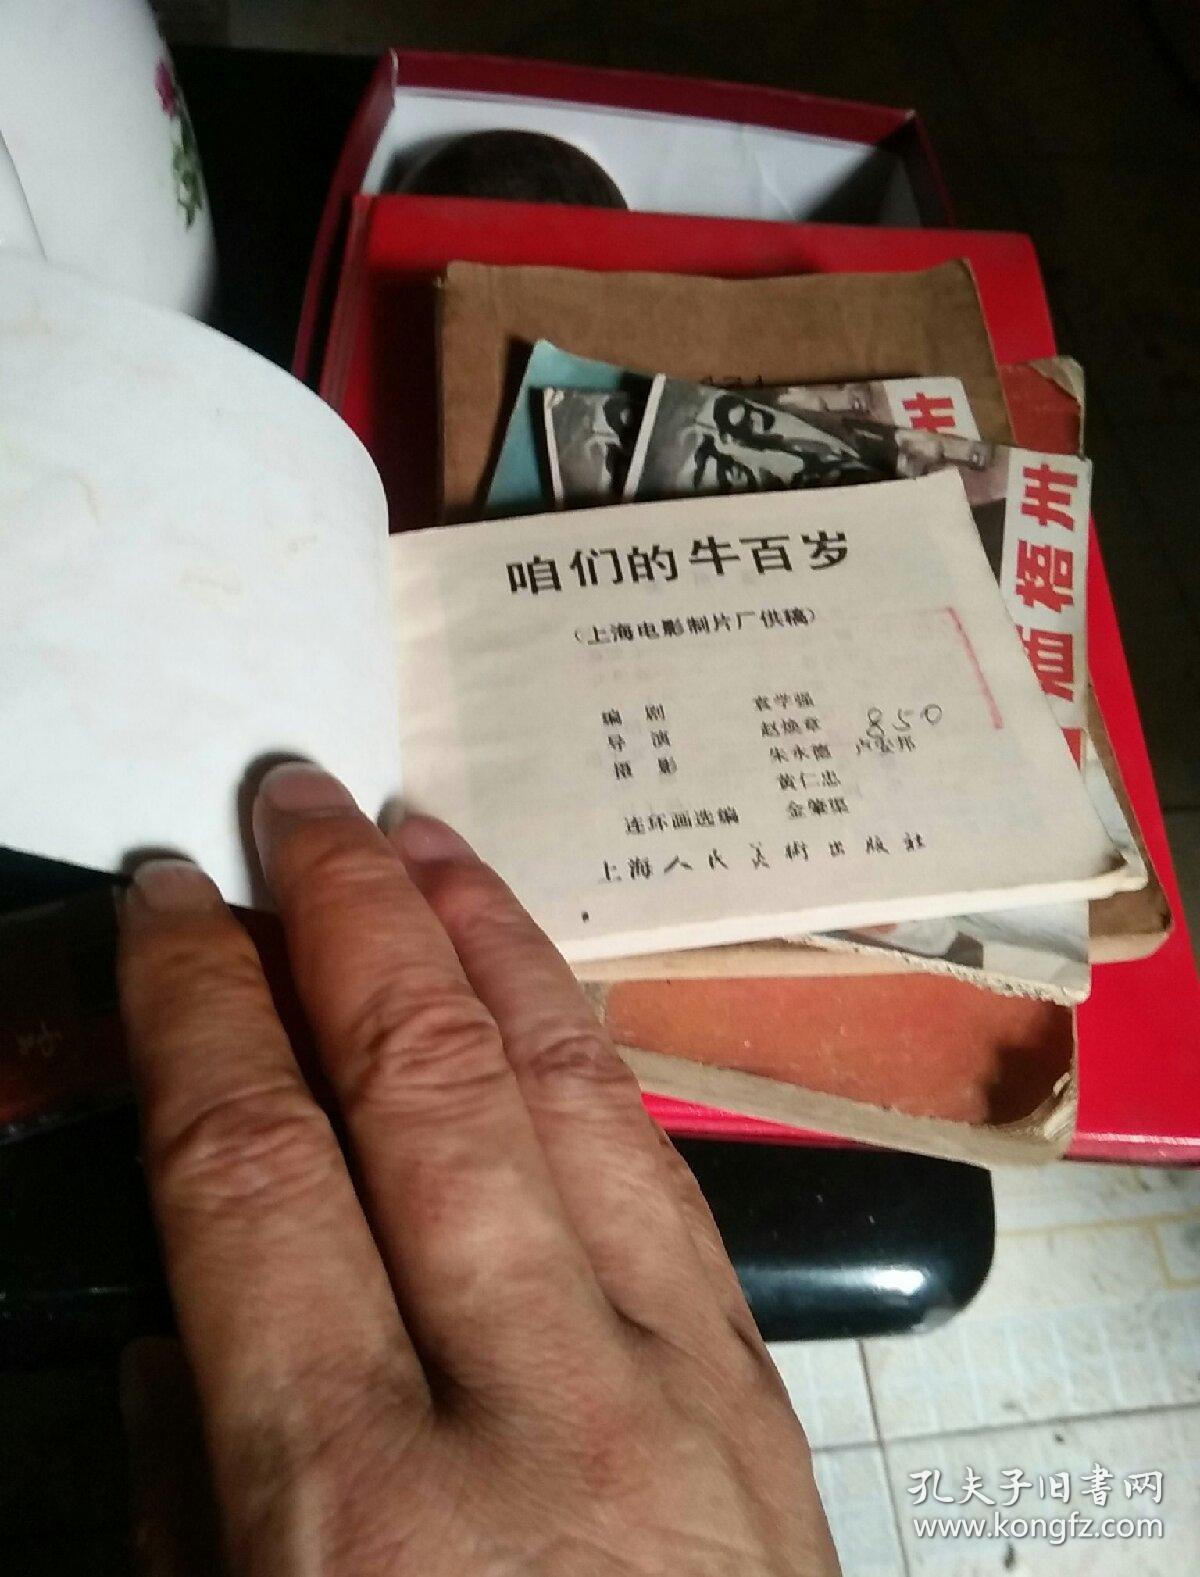 咱们的牛百岁
(上海电影制片厂供稿)
编 剧 袁学强
导 演 赵焕章
850
摄 影 朱永德 卢俊邦
黄仁忠
连环画选编 金肇渠
上海人民美術出版社
孔夫子旧書网
www.kongfz.com